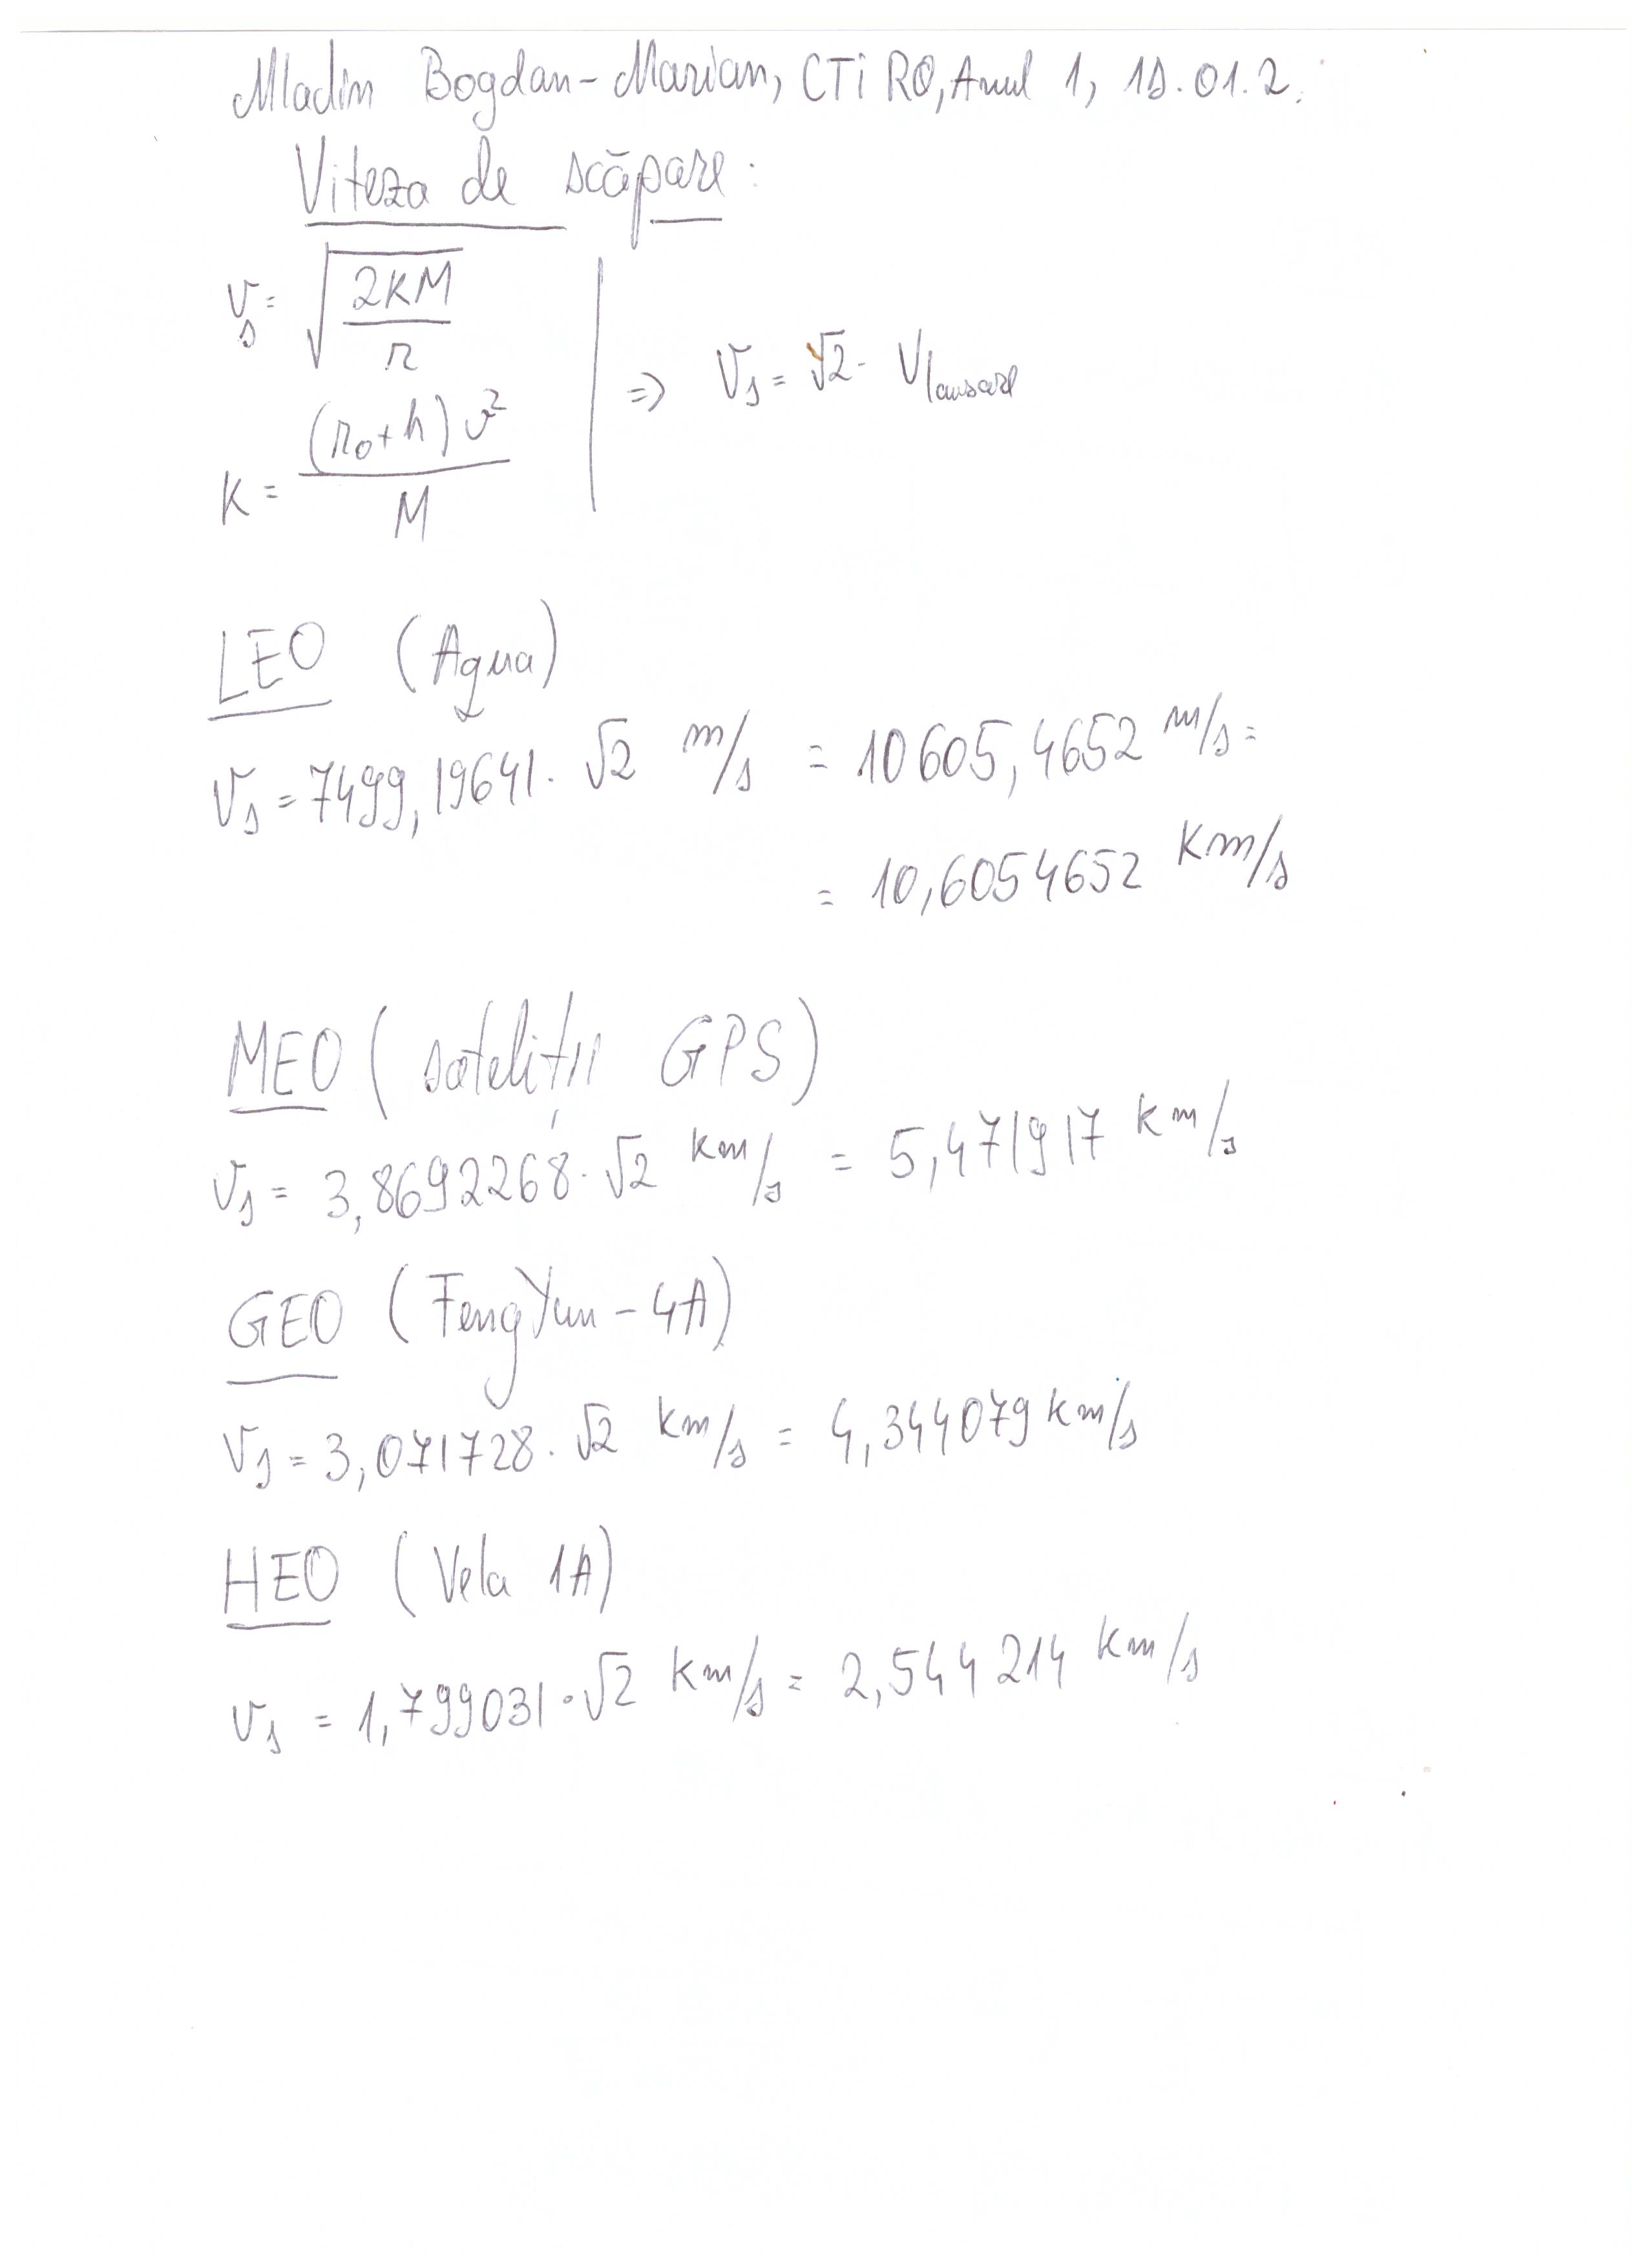 Mladin Bogdan-Marian, CTi RO, Anul 1, 1D.01.2.
Viteza de scăpare:
vs = √(2KM / r)
K = (r0+h) v² / M
=> Vs = √2 · Vlansare
LEO (Aqua)
Vs = 7499,19641 · √2 m/s = 10605,4652 m/s =
= 10,6054652 Km/s
MEO (sateliții GPS)
Vs = 3,8692268 · √2 km/s = 5,471917 km/s
GEO (FengYun-4A)
Vs = 3,071728 · √2 km/s = 4,344079 km/s
HEO (Vela 1A)
Vs = 1,799031 · √2 km/s = 2,544214 km/s